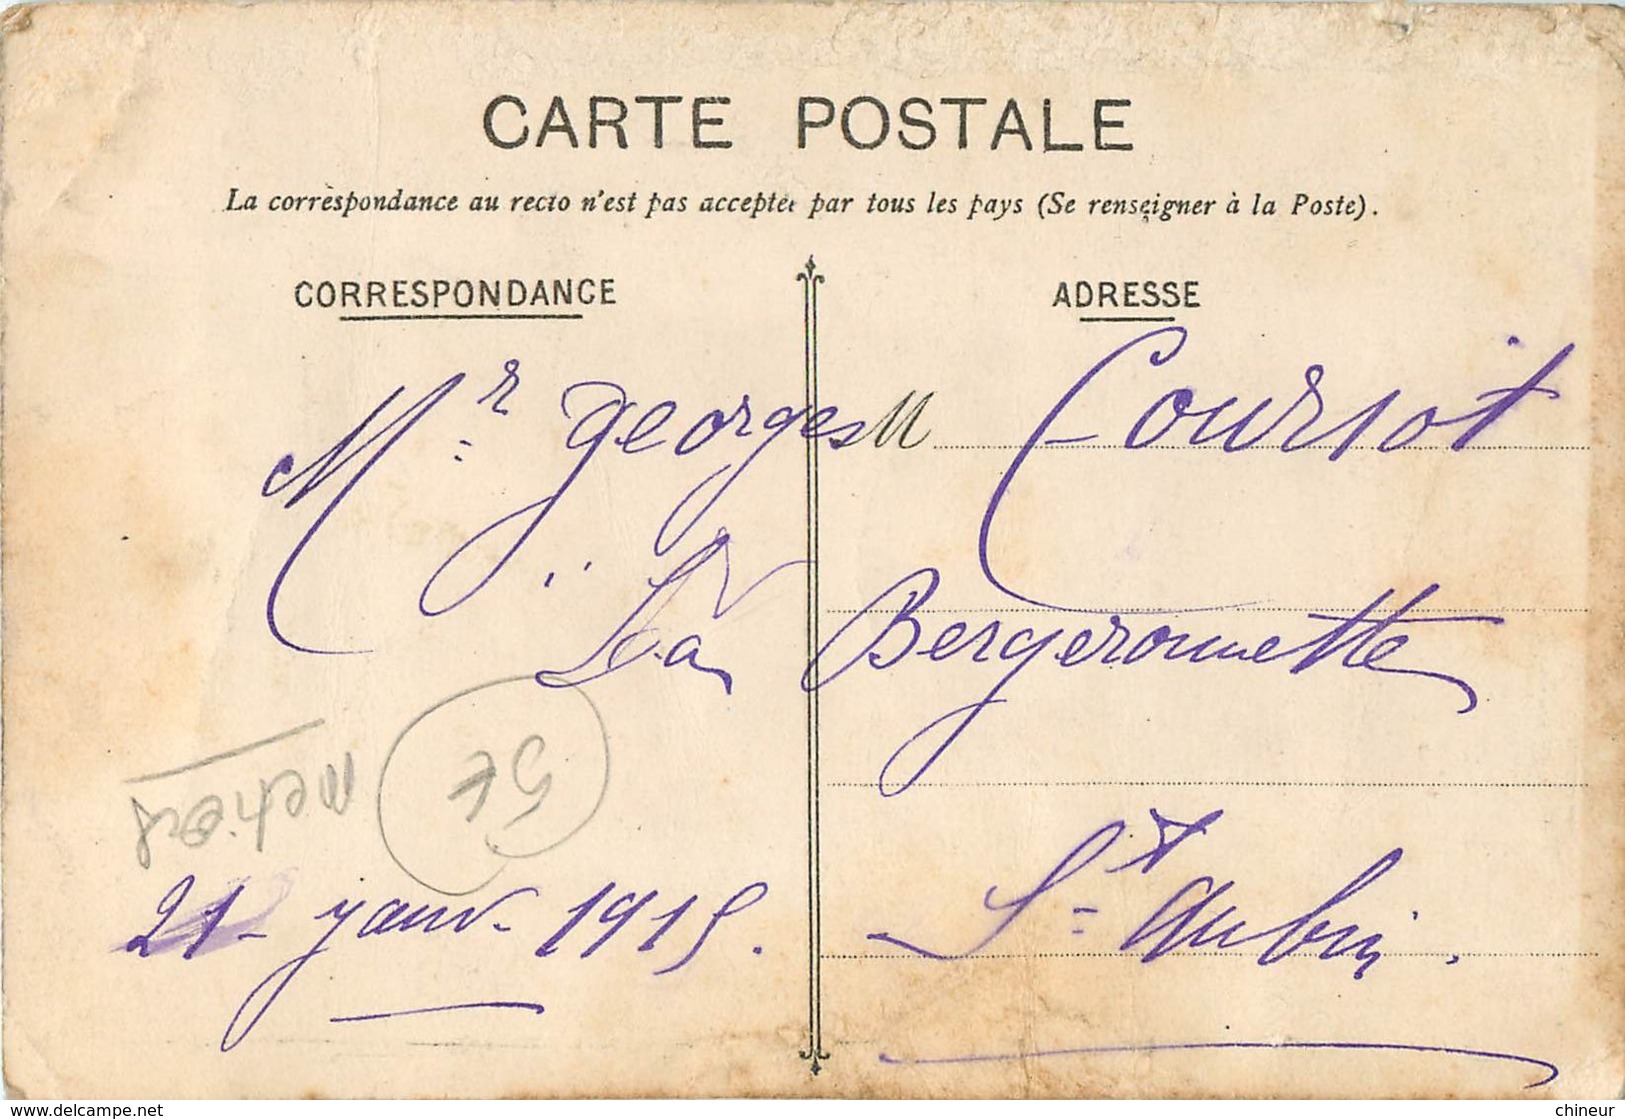 CARTE POSTALE
La correspondance au recto n'est pas acceptée par tous les pays (Se renseigner à la Poste).
CORRESPONDANCE
ADRESSE
Mr georges M Coursot
La Bergeronnette
St Aubin.
5€
metiers
21 - janv. 1915.
www.delcampe.net
chineur